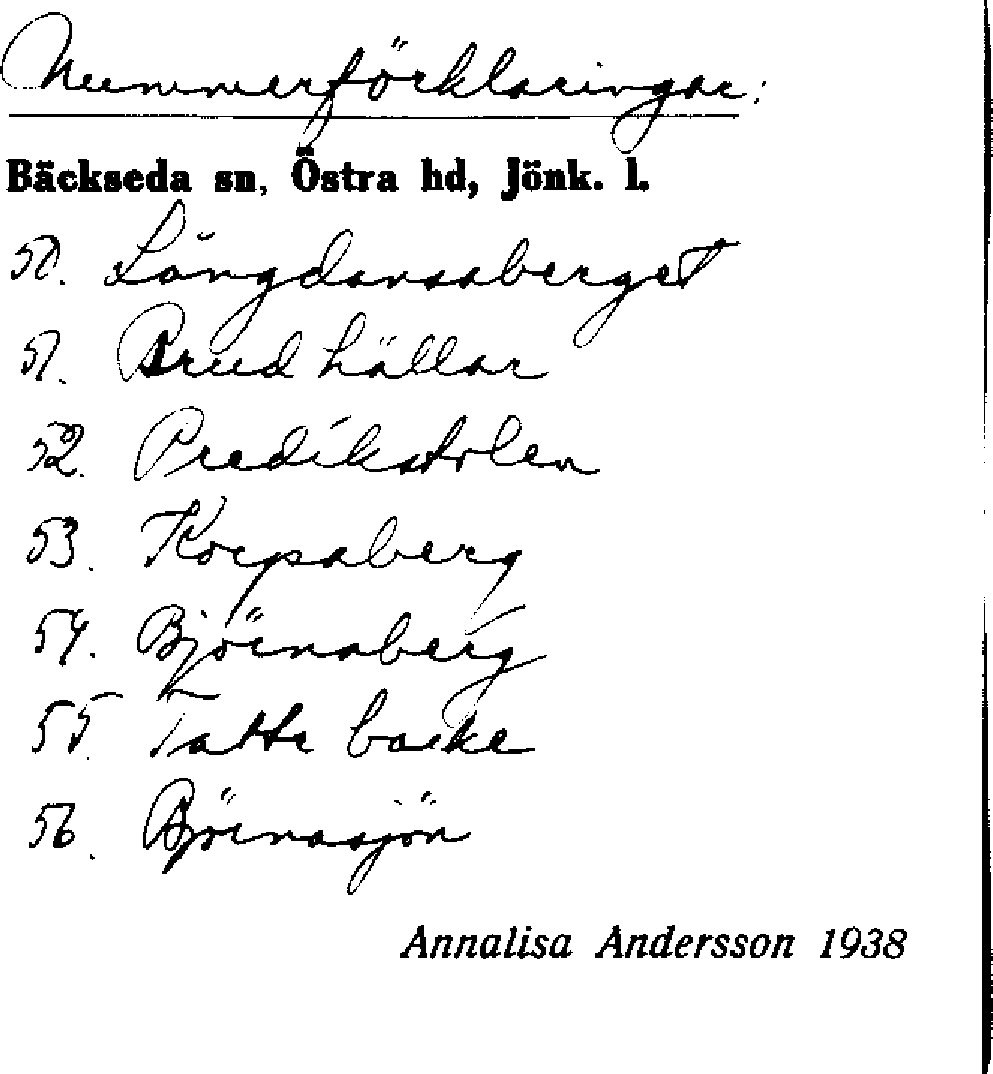 Nummerförklaringar:
Bäckseda sn, Östra hd, Jönk. l.
50. Långdansaberget
51. Brudhällar
52. Predikstolen
53. Korpaberg
54. Björnaberg
55. Tattebacke
56. Björnasjön
Annalisa Andersson 1938